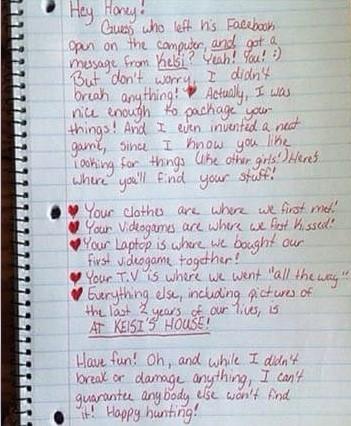 Hey Honey!
Guess who left his Facebook
open on the computer, and got a
message from Kelsi? Yeah! You! :)
But don't worry, I didn't
break anything! ♥ Actually, I was
nice enough to package your
things! And I even invented a neat
game, since I know you like
looking for things (like other girls!) Here's
where you'll find your stuff!
♥ Your clothes are where we first met!
♥ Your Videogames are where we first kissed!
♥ Your Laptop is where we bought our
first videogame together!
♥ Your T.V is where we went "all the way"
♥ Everything else, including pictures of
the last 2 years of our lives, is
AT KELSI'S HOUSE!
Have fun! Oh, and while I didn't
break or damage anything, I can't
guarantee anybody else won't find
it! Happy hunting!